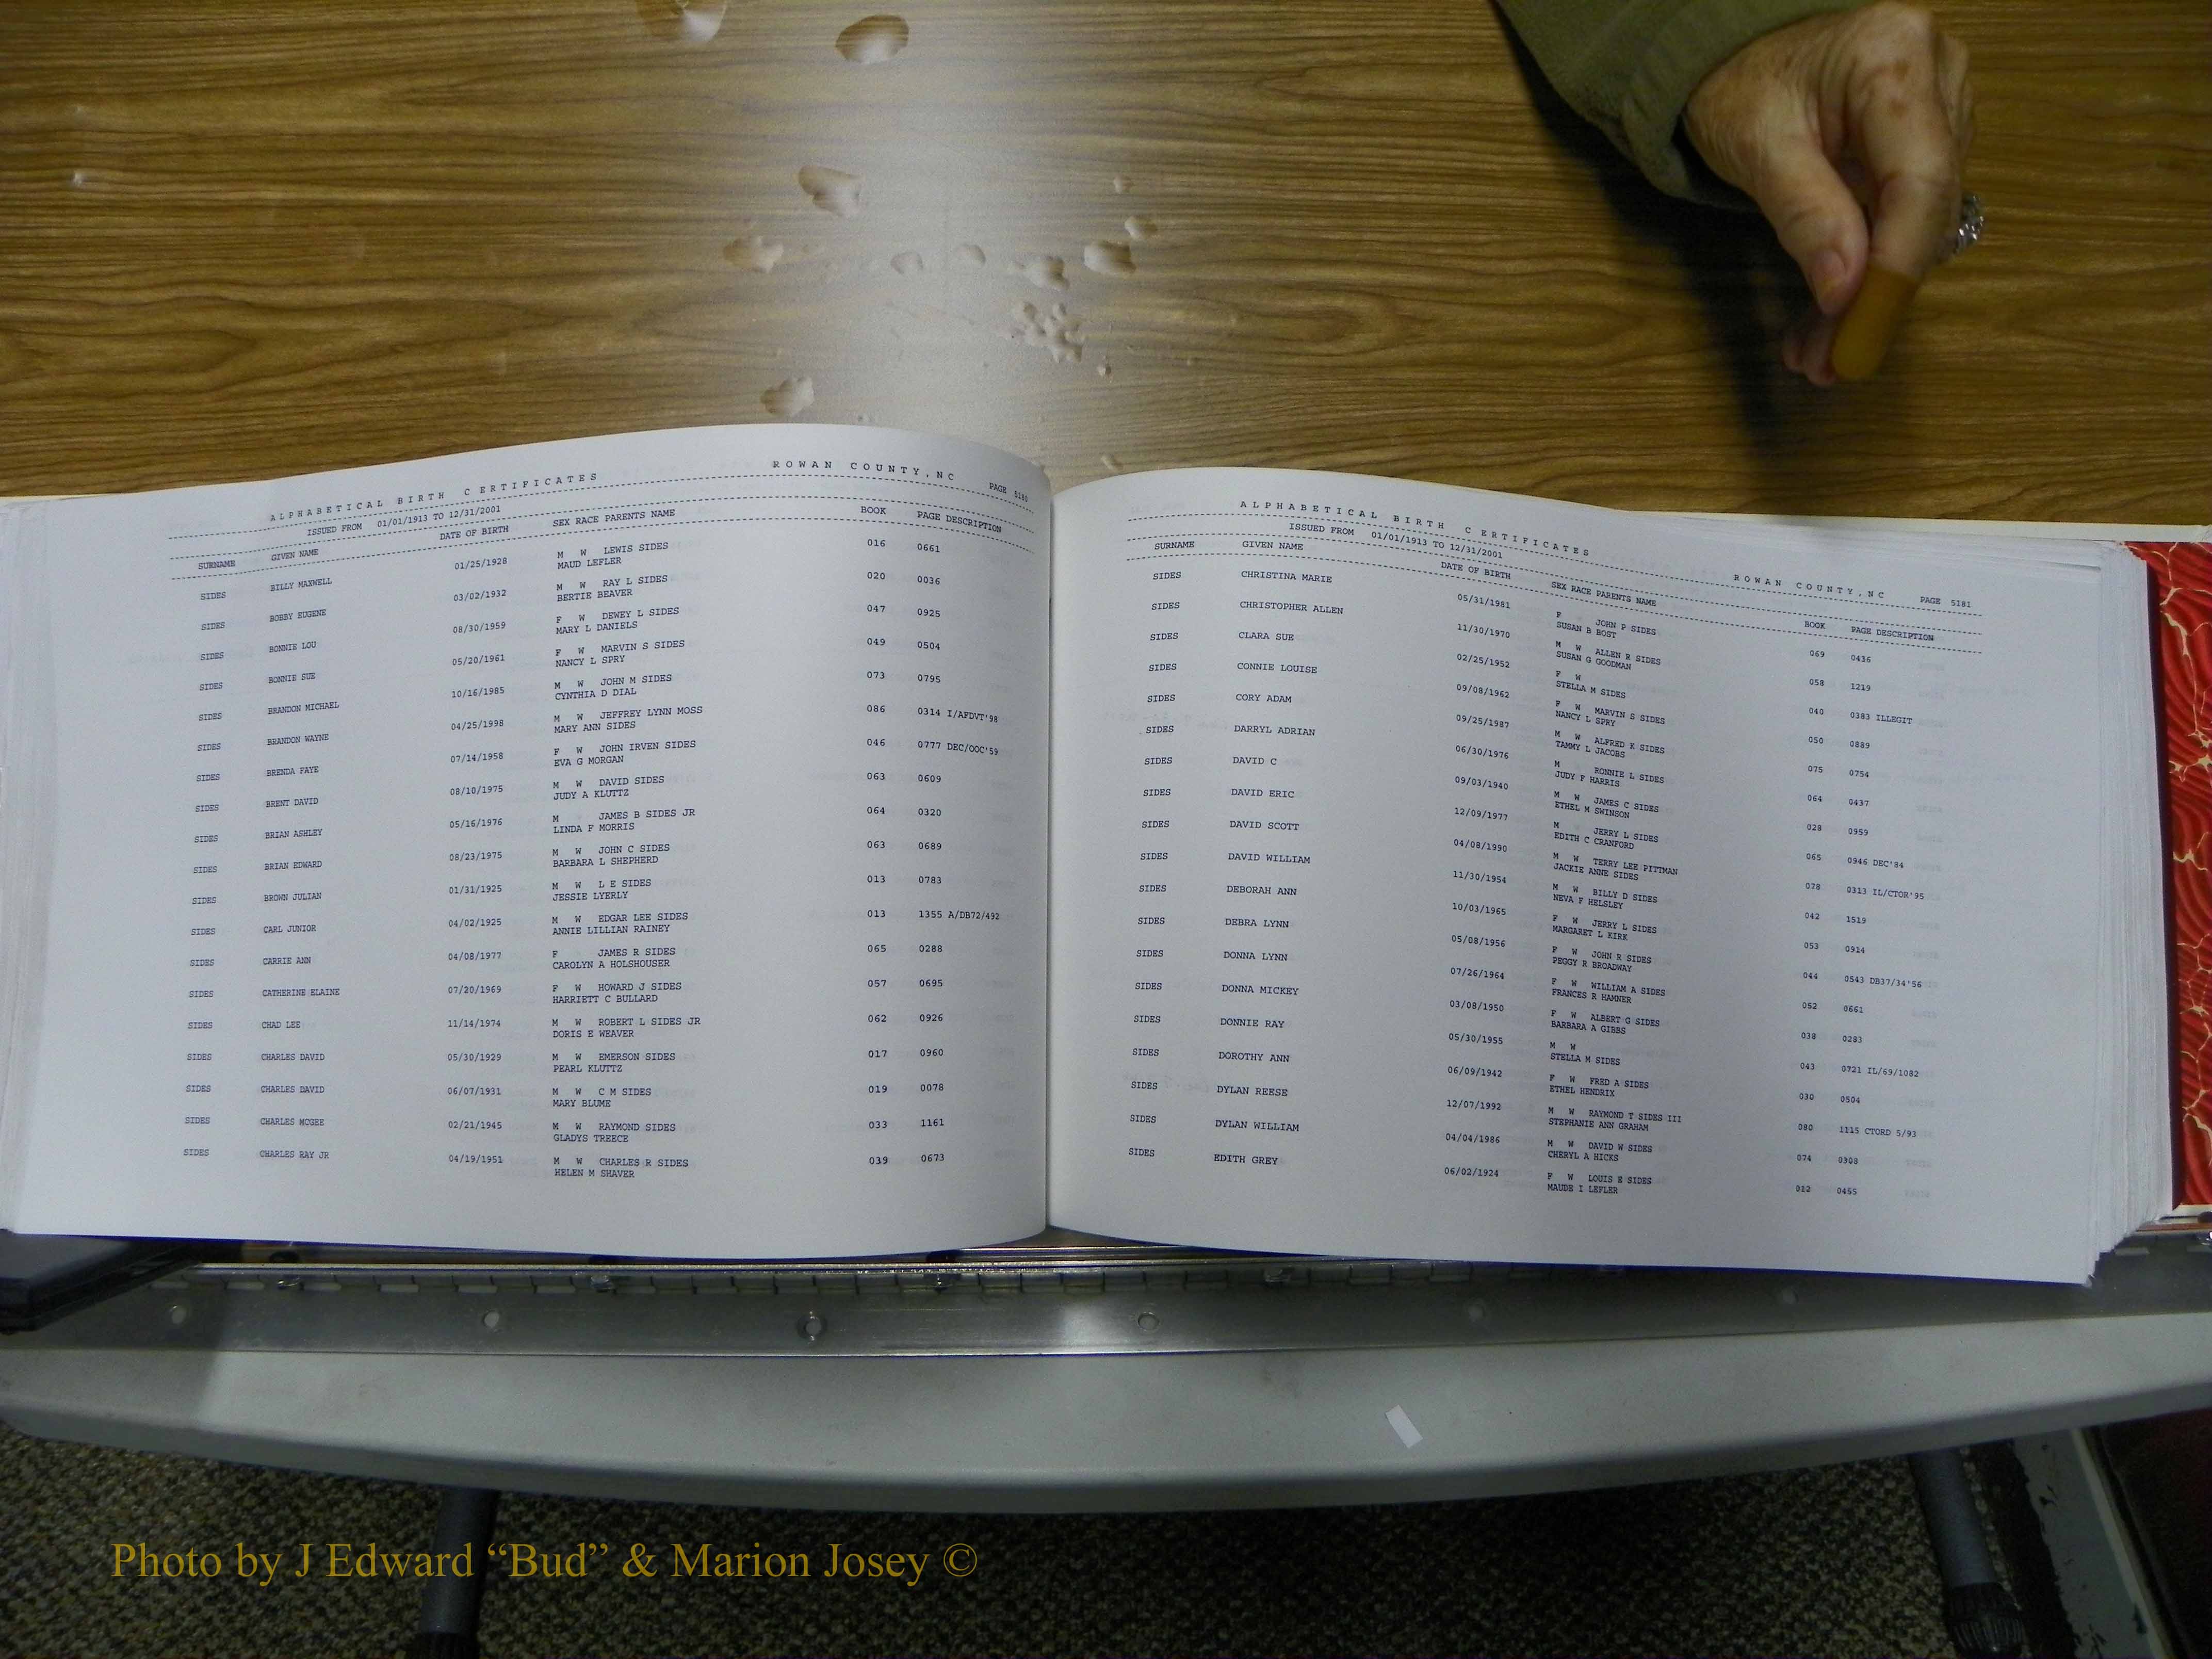 ALPHABETICAL BIRTH CERTIFICATES ROWAN COUNTY,NC PAGE 5180
ISSUED FROM 01/01/1913 TO 12/31/2001
SURNAME GIVEN NAME DATE OF BIRTH SEX RACE PARENTS NAME BOOK PAGE DESCRIPTION
SIDES BILLY MAXWELL 01/25/1928 M W LEWIS SIDES 016 0661
MAUD LEFLER
SIDES BOBBY EUGENE 03/02/1932 M W RAY L SIDES 020 0036
BERTIE BEAVER
SIDES BONNIE LOU 08/30/1959 F W DEWEY L SIDES 047 0925
MARY L DANIELS
SIDES BONNIE SUE 05/20/1961 F W MARVIN S SIDES 049 0504
NANCY L SPRY
SIDES BRANDON MICHAEL 10/16/1985 M W JOHN M SIDES 073 0795
CYNTHIA D DIAL
SIDES BRANDON WAYNE 04/25/1998 M W JEFFREY LYNN MOSS 086 0314 I/AFDVT'98
MARY ANN SIDES
SIDES BRENDA FAYE 07/14/1958 F W JOHN IRVEN SIDES 046 0777 DEC/OOC'59
EVA G MORGAN
SIDES BRENT DAVID 08/10/1975 M W DAVID SIDES 063 0609
JUDY A KLUTTZ
SIDES BRIAN ASHLEY 05/16/1976 M JAMES B SIDES JR 064 0320
LINDA F MORRIS
SIDES BRIAN EDWARD 08/23/1975 M W JOHN C SIDES 063 0689
BARBARA L SHEPHERD
SIDES BROWN JULIAN 01/31/1925 M W L E SIDES 013 0783
JESSIE LYERLY
SIDES CARL JUNIOR 04/02/1925 M W EDGAR LEE SIDES 013 1355 A/DB72/492
ANNIE LILLIAN RAINEY
SIDES CARRIE ANN 04/08/1977 F JAMES R SIDES 065 0288
CAROLYN A HOLSHOUSER
SIDES CATHERINE ELAINE 07/20/1969 F W HOWARD J SIDES 057 0695
HARRIETT C BULLARD
SIDES CHAD LEE 11/14/1974 M W ROBERT L SIDES JR 062 0926
DORIS E WEAVER
SIDES CHARLES DAVID 05/30/1929 M W EMERSON SIDES 017 0960
PEARL KLUTTZ
SIDES CHARLES DAVID 06/07/1931 M W C M SIDES 019 0078
MARY BLUME
SIDES CHARLES MCGEE 02/21/1945 M W RAYMOND SIDES 033 1161
GLADYS TREECE
SIDES CHARLES RAY JR 04/19/1951 M W CHARLES R SIDES 039 0673
HELEN M SHAVER
ALPHABETICAL BIRTH CERTIFICATES ROWAN COUNTY,NC PAGE 5181
ISSUED FROM 01/01/1913 TO 12/31/2001
SURNAME GIVEN NAME DATE OF BIRTH SEX RACE PARENTS NAME BOOK PAGE DESCRIPTION
SIDES CHRISTINA MARIE 05/31/1981 F JOHN P SIDES 069 0436
SUSAN B BOST
SIDES CHRISTOPHER ALLEN 11/30/1970 M W ALLEN R SIDES 058 1219
SUSAN G GOODMAN
SIDES CLARA SUE 02/25/1952 F W 040 0383 ILLEGIT
STELLA M SIDES
SIDES CONNIE LOUISE 09/08/1962 F W MARVIN S SIDES 050 0889
NANCY L SPRY
SIDES CORY ADAM 09/25/1987 M W ALFRED K SIDES 075 0754
TAMMY L JACOBS
SIDES DARRYL ADRIAN 06/30/1976 M RONNIE L SIDES 064 0437
JUDY F HARRIS
SIDES DAVID C 09/03/1940 M W JAMES C SIDES 028 0959
ETHEL M SWINSON
SIDES DAVID ERIC 12/09/1977 M JERRY L SIDES 065 0946 DEC'84
EDITH C CRANFORD
SIDES DAVID SCOTT 04/08/1990 M W TERRY LEE PITTMAN 078 0313 IL/CTOR'95
JACKIE ANNE SIDES
SIDES DAVID WILLIAM 11/30/1954 M W BILLY D SIDES 042 1519
NEVA F HELSLEY
SIDES DEBORAH ANN 10/03/1965 F W JERRY L SIDES 053 0914
MARGARET L KIRK
SIDES DEBRA LYNN 05/08/1956 F W JOHN R SIDES 044 0543 DB37/34'56
PEGGY R BROADWAY
SIDES DONNA LYNN 07/26/1964 F W WILLIAM A SIDES 052 0661
FRANCES R HAMNER
SIDES DONNA MICKEY 03/08/1950 F W ALBERT G SIDES 038 0283
BARBARA A GIBBS
SIDES DONNIE RAY 05/30/1955 M W 043 0721 IL/69/1082
STELLA M SIDES
SIDES DOROTHY ANN 06/09/1942 F W FRED A SIDES 030 0504
ETHEL HENDRIX
SIDES DYLAN REESE 12/07/1992 M W RAYMOND T SIDES III 080 1115 CTORD 5/93
STEPHANIE ANN GRAHAM
SIDES DYLAN WILLIAM 04/04/1986 M W DAVID W SIDES 074 0308
CHERYL A HICKS
SIDES EDITH GREY 06/02/1924 F W LOUIS E SIDES 012 0455
MAUDE I LEFLER
Photo by J Edward “Bud” & Marion Josey ©